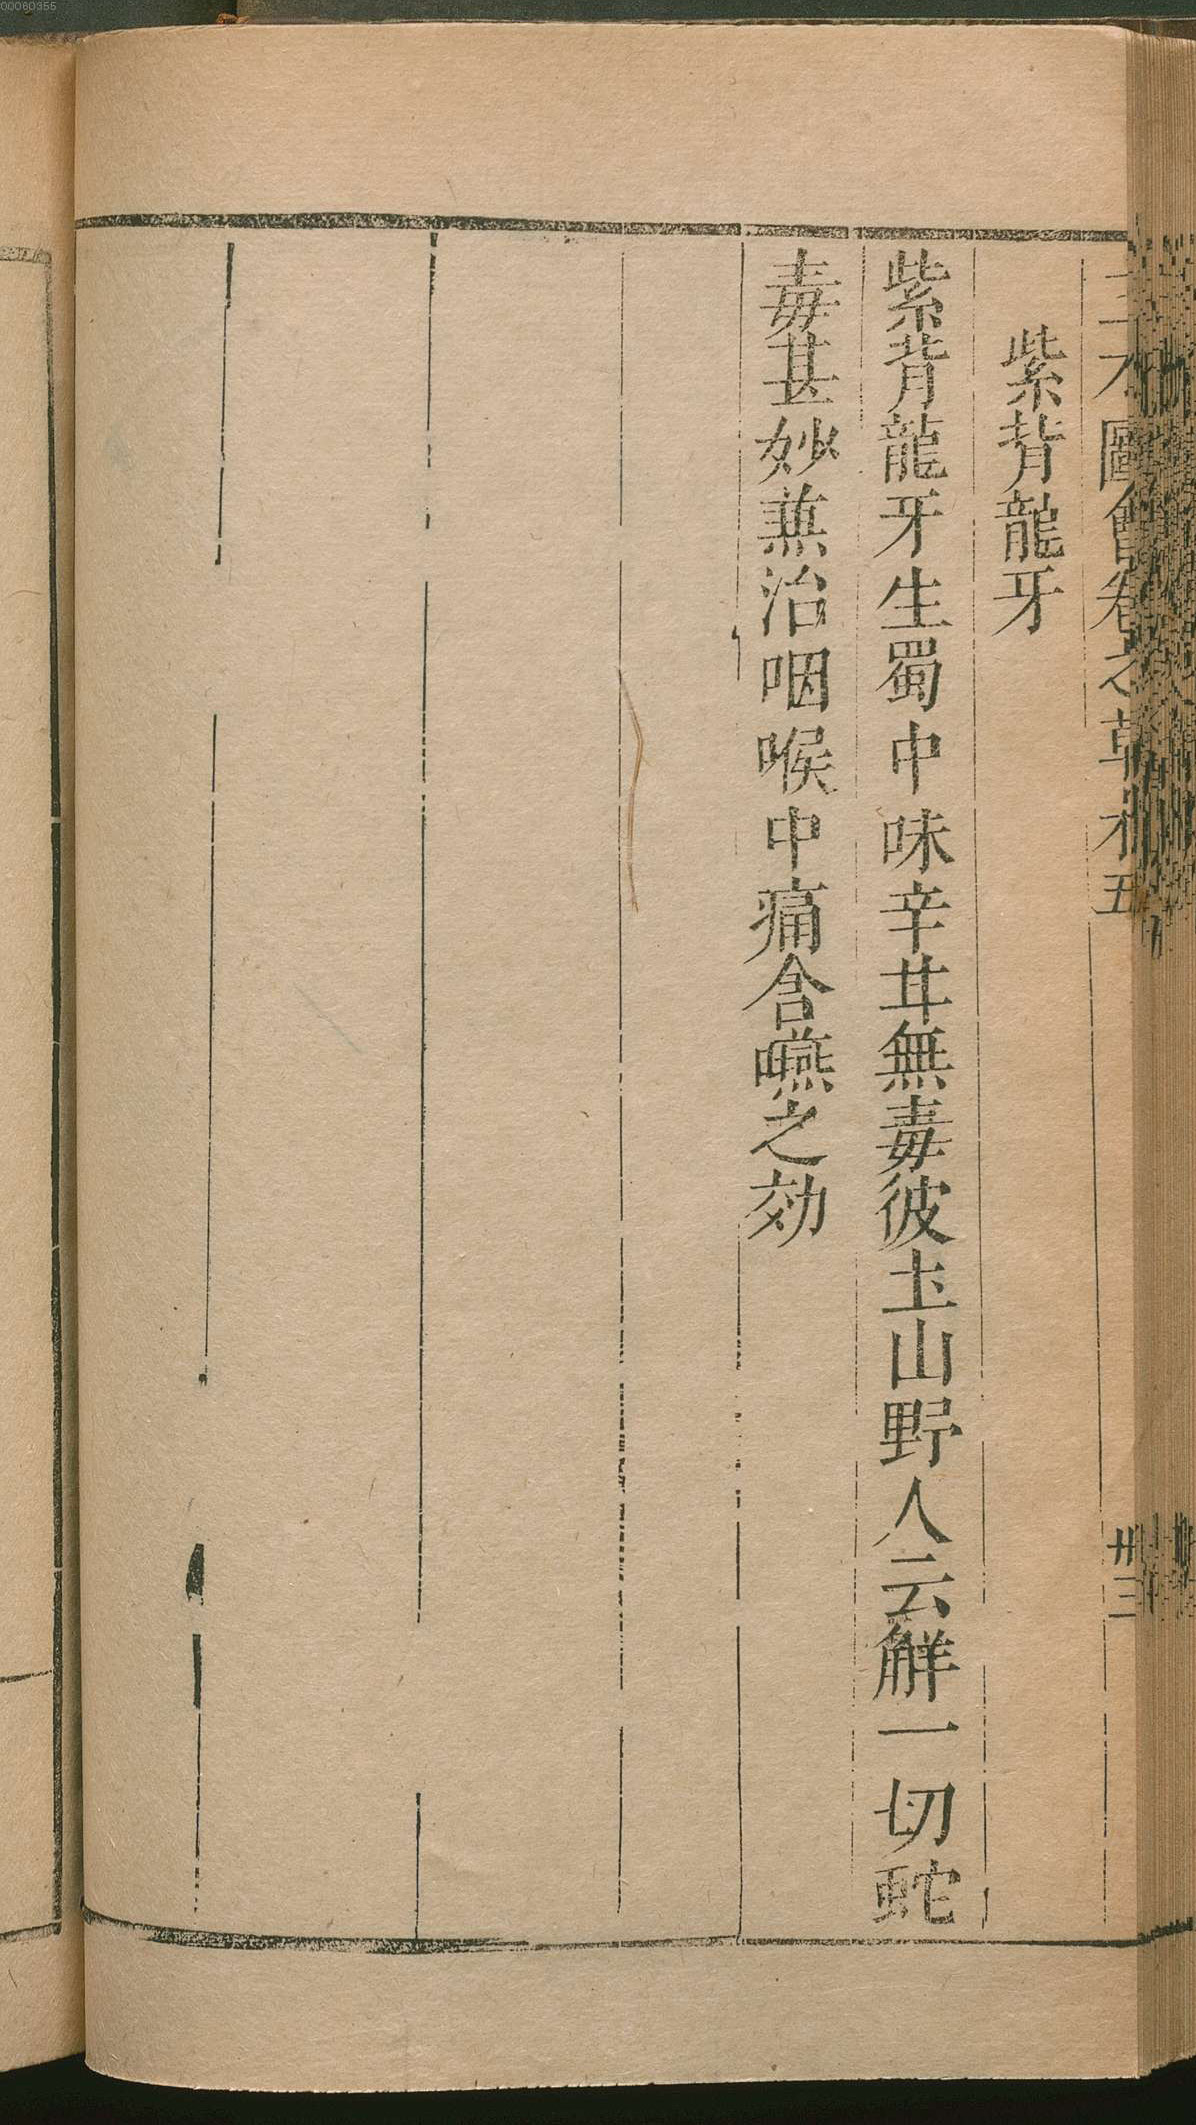 00060355
圖會卷之草木五
卅三
紫背龍牙
紫背龍牙生蜀中味辛甘無毒彼土山野人云觧一切蛇
毒甚妙兼治咽喉中痛含嚥之効